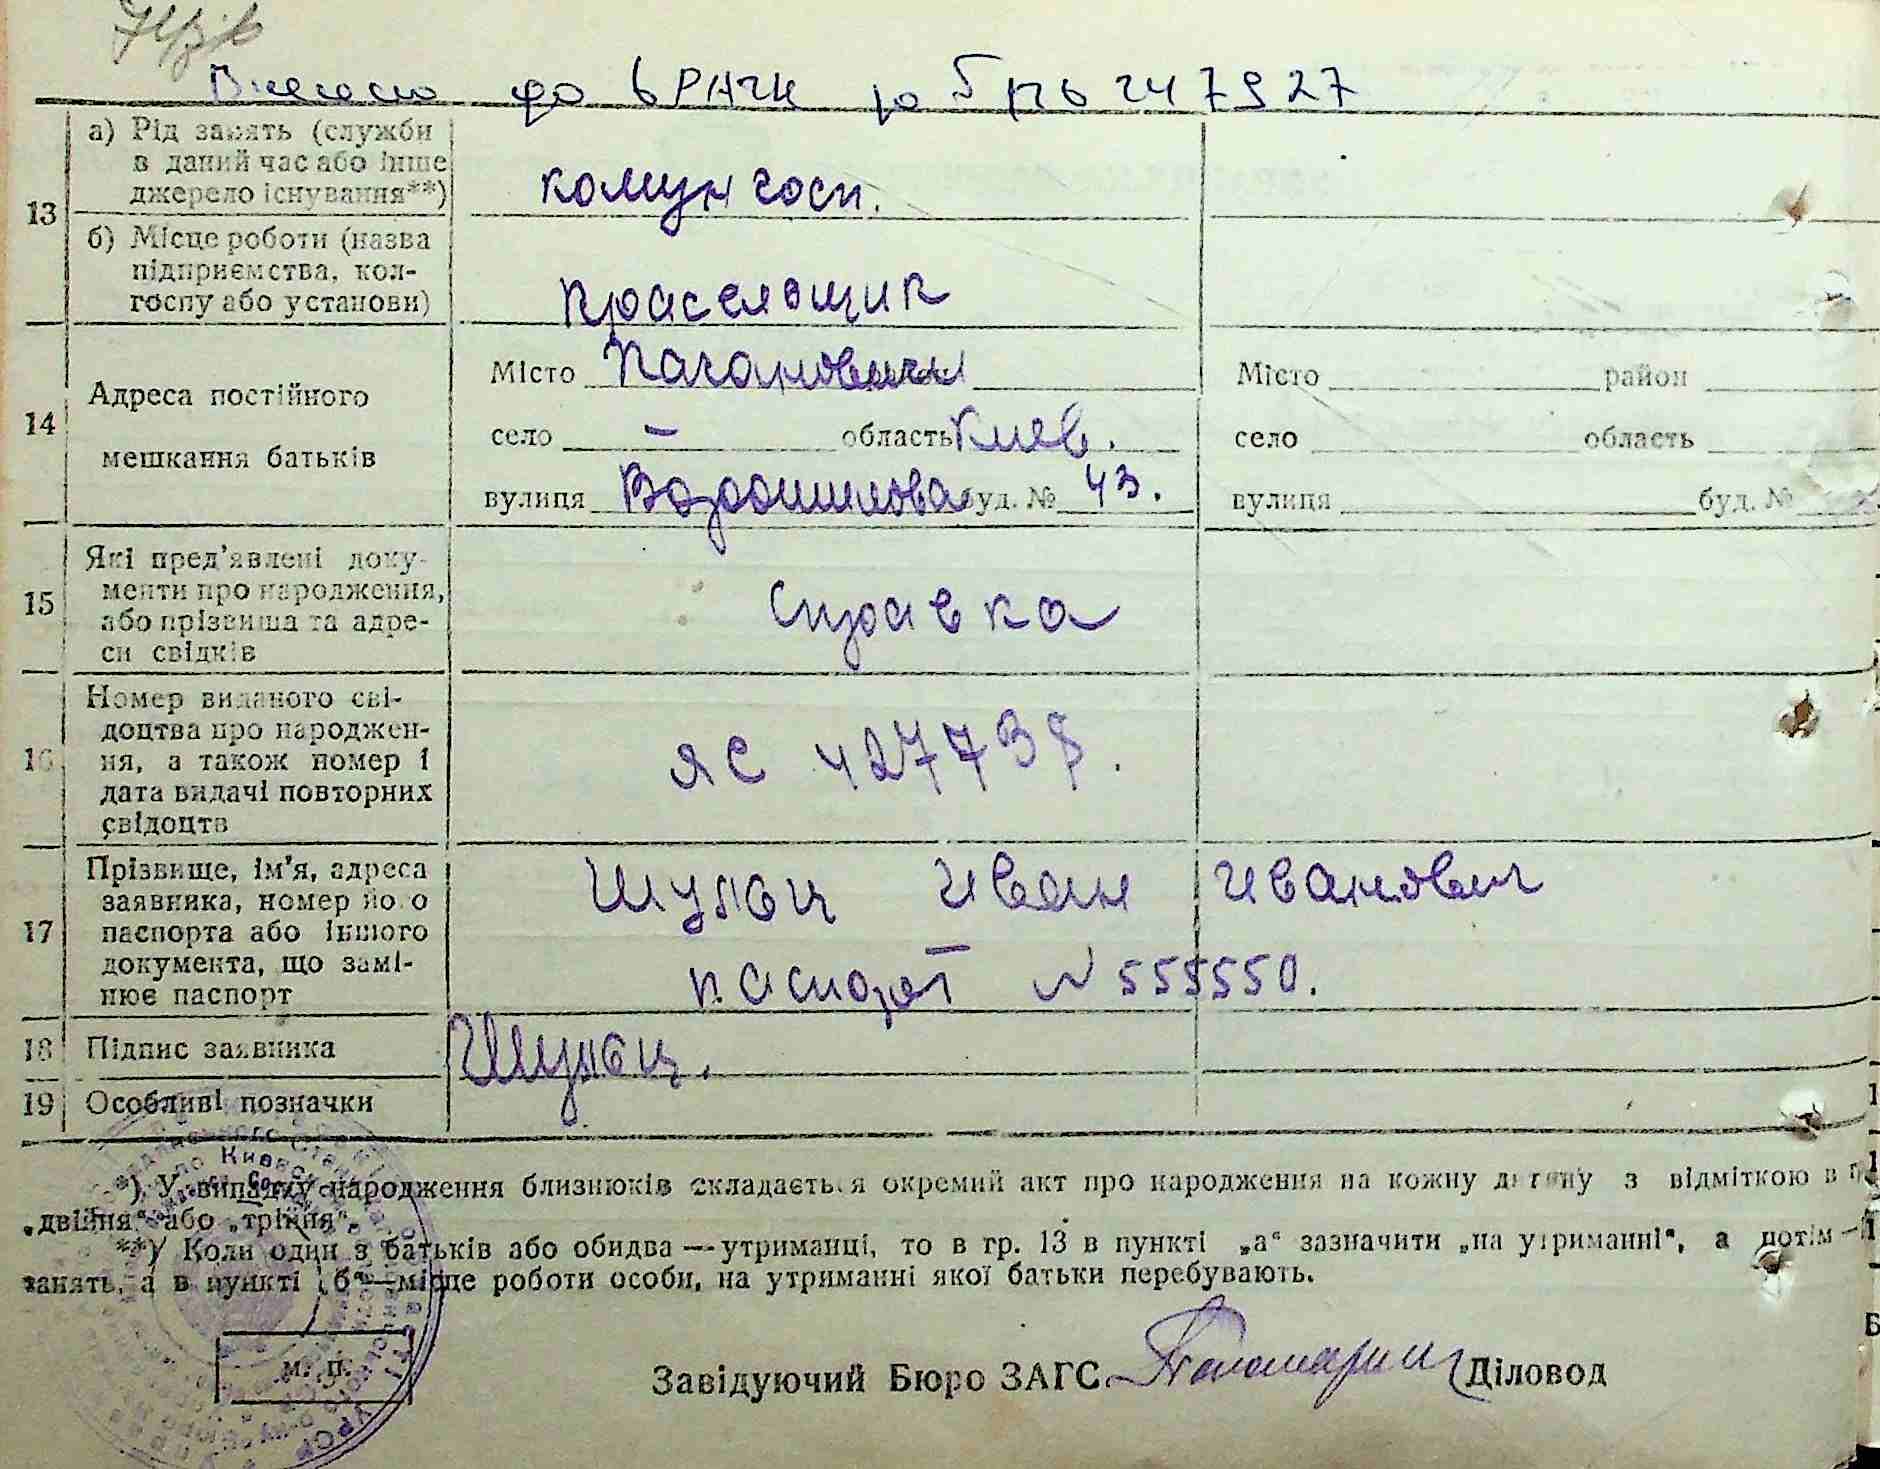 Внесено до
13
а) Рід занять (служби
в даний час або інше
джерело існування**)
комунгосп.
б) Місце роботи (назва
підприємства, кол-
госпу або установи)
14
Адреса постійного
мешкання батьків
Місто Кагановичи
Місто район
село — область Киев.
село область
вулиця Ворошилова буд. № 43.
вулиця буд. №
15
Які пред'явлені доку-
менти про народження,
або прізвища та адре-
си свідків
справка
16
Номер виданого сві-
доцтва про народжен-
ня, а також номер і
дата видачі повторних
свідоцтв
ЯС 427738.
17
Прізвище, ім'я, адреса
заявника, номер його
паспорта або іншого
документа, що замі-
нює паспорт
Иван Иванович
паспорт N 555550.
18
Підпис заявника
19
Особливі позначки
*) У випадку народження близнюків складається окремий акт про народження на кожну дитину з відміткою в
„двійня“ або „трійня“.
**) Коли один з батьків або обидва — утриманці, то в гр. 13 в пункті „а“ зазначити „на утриманні“, а потім —
занять, а в пункті „б“ — місце роботи особи, на утриманні якої батьки перебувають.
м. п.
Завідуючий Бюро ЗАГС Діловод